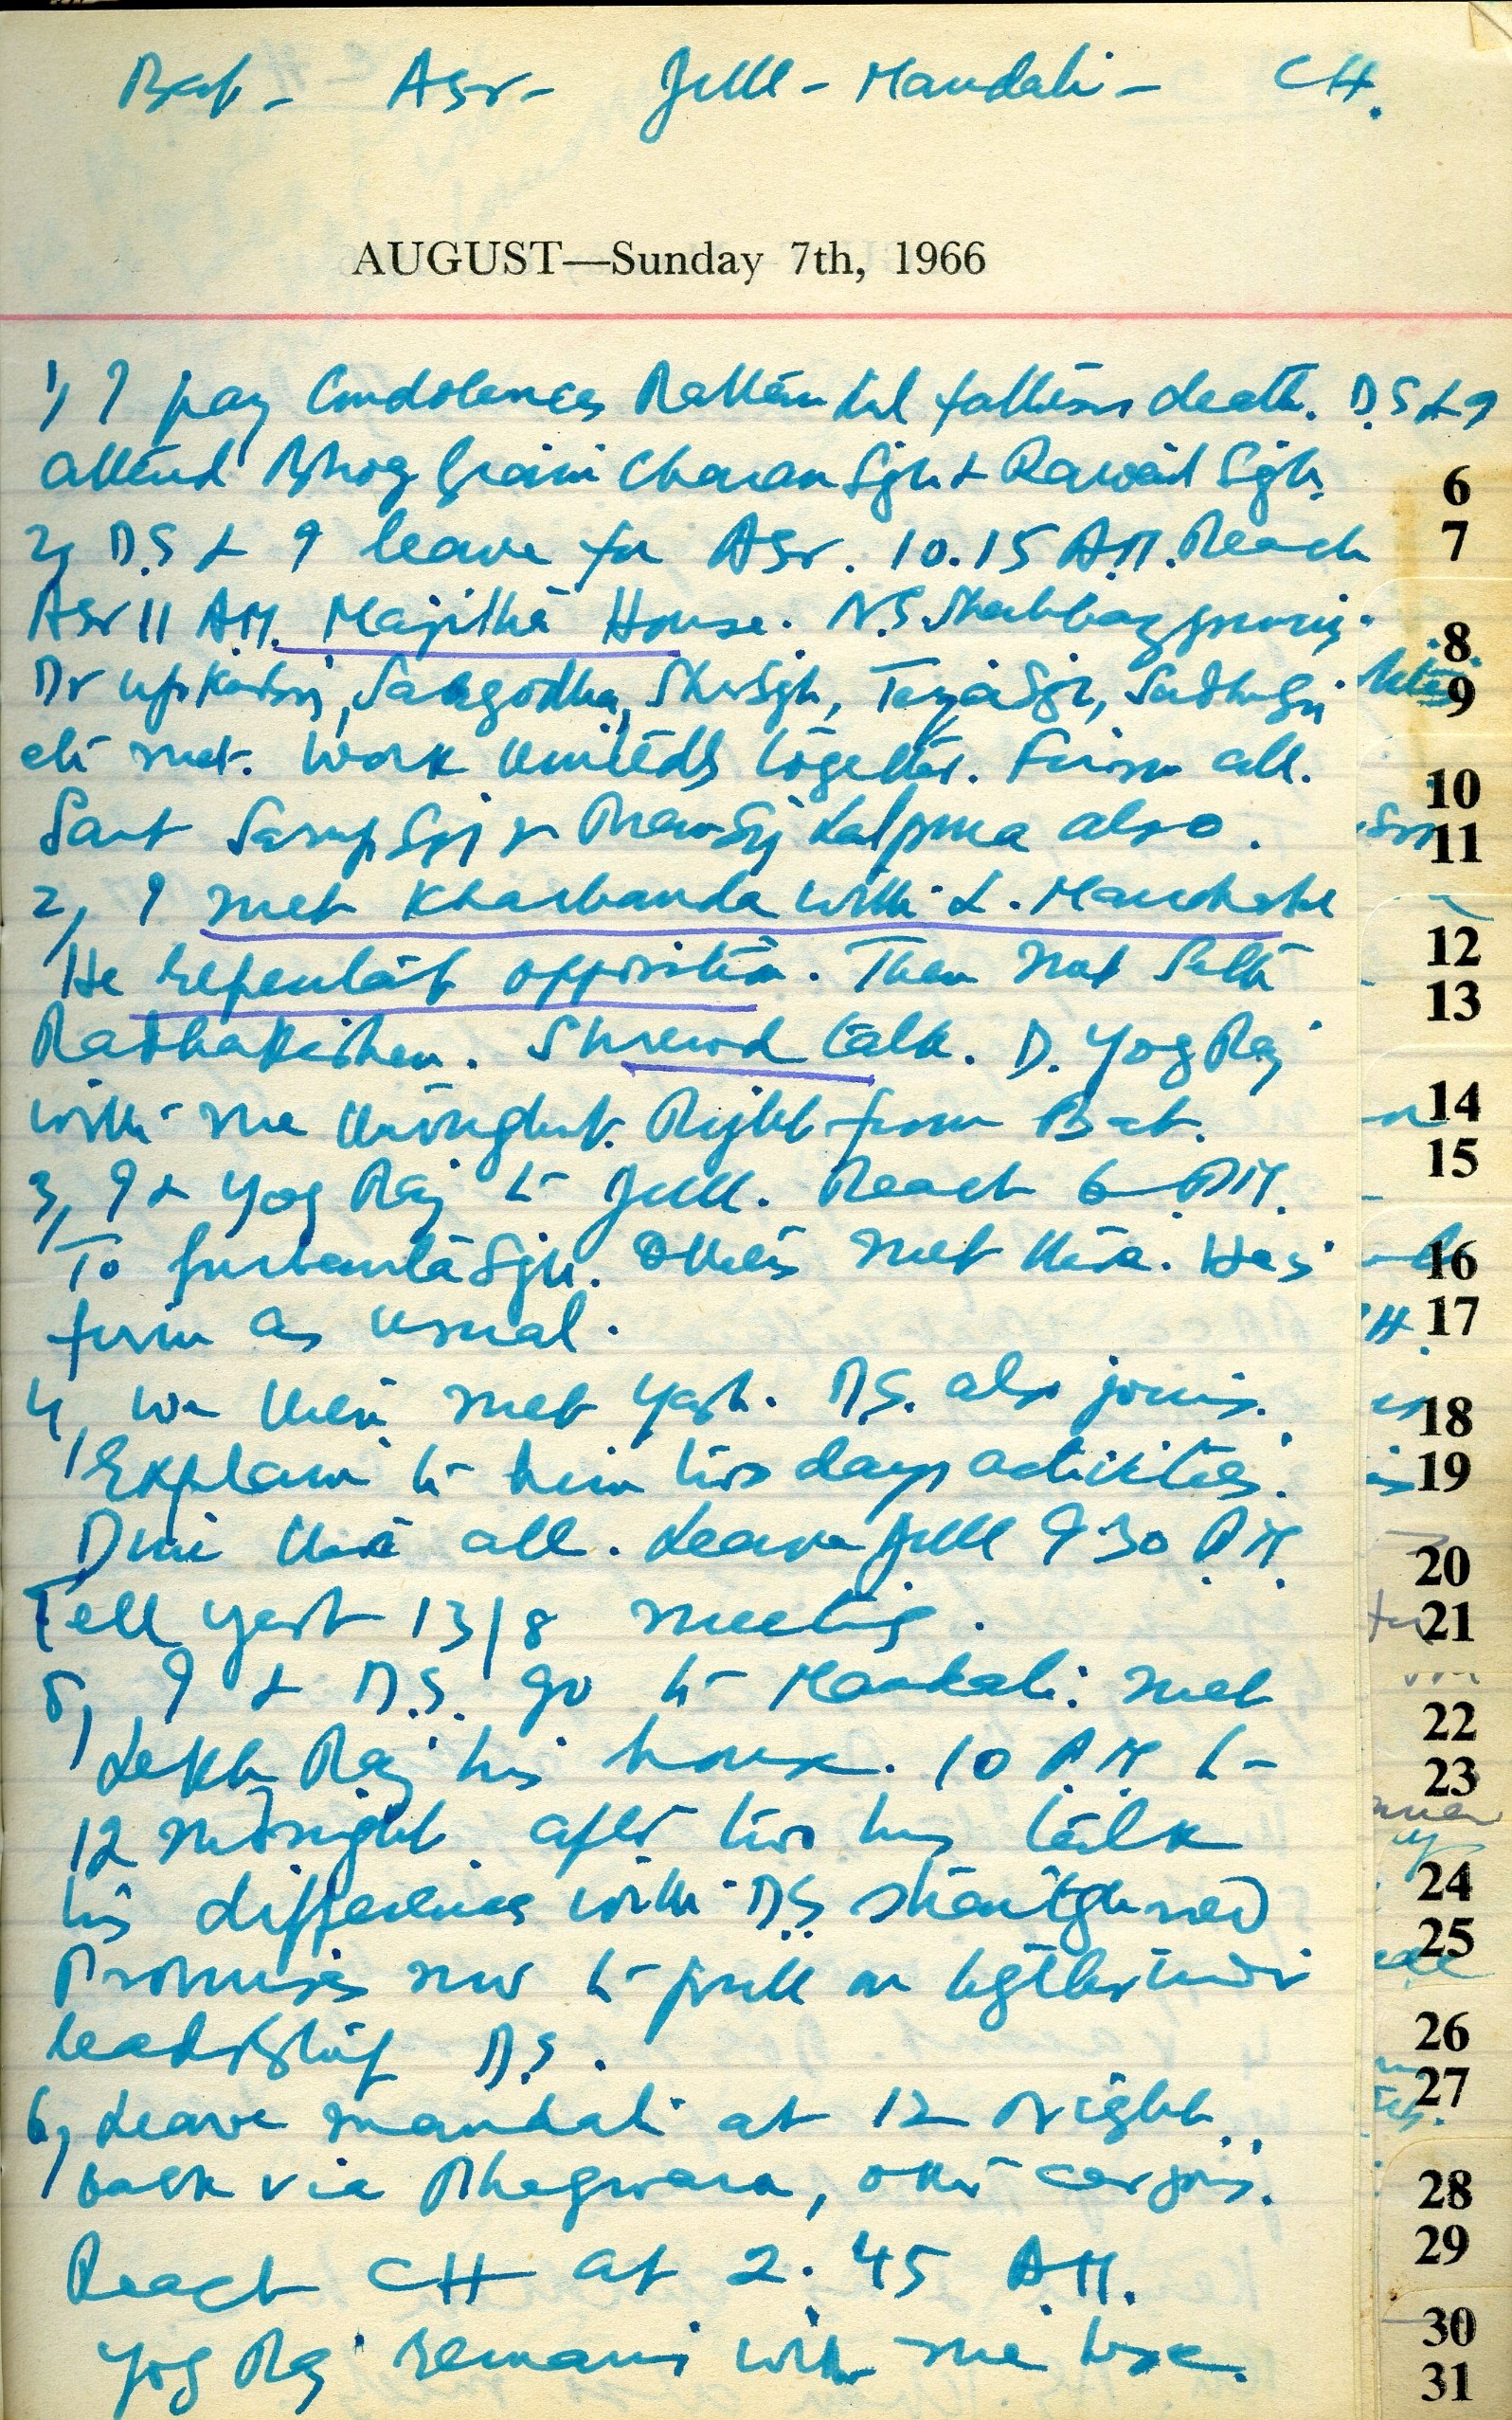 Bat - Asr - Jull - Mandali - CH.
AUGUST—Sunday 7th, 1966
1, I pay Condolences Rattan Lal fathers death. D.S & I
attend Bhog Giani Charan Sgh & Rawail Sgh.
2, D.S & I leave for Asr. 10.15 A.M. Reach
Asr 11 A.M. Majitha House. N.S. Shahbazpuri
Dr Sargodha, Sher Sgh, Teja Sgh, Sadhu Sgh
etc met. Work unitedly together. Firm all.
Sant Sarup Sgh & Sgh Kalpura also.
2, I met Kharbanda with L. Manohar
He repentant opposition. Then met Seth
Radhakishen. Shrewd talk. D. Yog Raj
with me throughout. Right from Bat.
3, I & Yog Raj to Jull. Reach 6 PM.
To Gurbanta Sgh. Others met there. He is
firm as usual.
4, We then met Yash. D.S. also joins.
Explain to him two days activities.
Dine there all. Leave Jull 9 30 P.M.
Tell Yash 13/8 meeting.
5, I & D.S. go to Mandali. Met
Lekh Raj his house. 10 P.M to
12 midnight after two hrs talk
his differences with D.S straightened
Promises now to pull on together under
leadership D.S.
6, Leave mandali at 12 Night.
back via Phagwara, other car joins.
Reach CH at 2.45 A.M.
Yog Raj remains with me here.
6
7
8
9
10
11
12
13
14
15
16
17
18
19
20
21
22
23
24
25
26
27
28
29
30
31